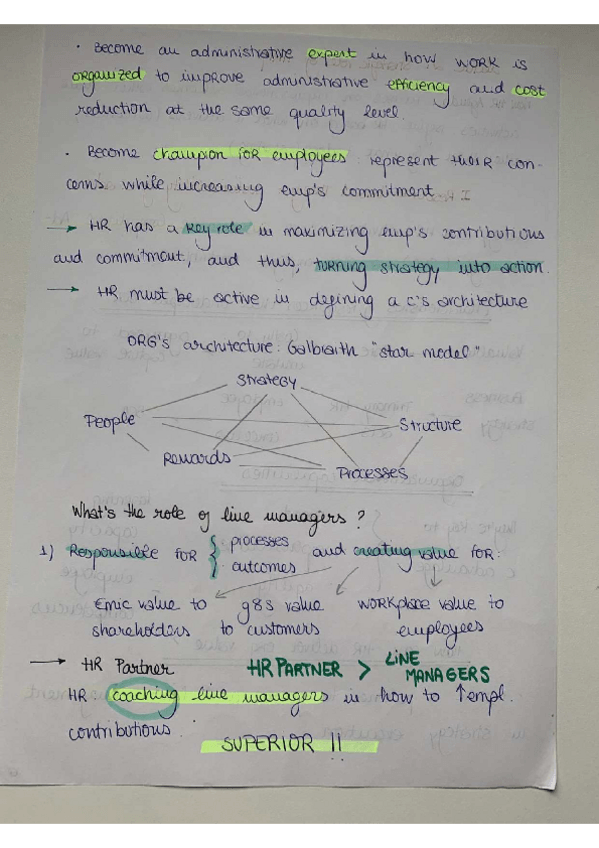 · Become an administrative expert in how WORK is
organized to improve administrative efficiency and cost
reduction at the same quality level.
· Become champion for employees: represent their con-
cerns while increasing emp's commitment
→ HR has a key role in maximizing emp's contributions
and commitment, and thus, turning strategy into action.
→ HR must be active in defining a c's architecture
ORG's architecture: Galbraith "star model"
Strategy
People
Structure
Rewards
Processes
What's the role of line managers?
1) Responsible for { processes
outcomes
and creating value for:
Emic value to
shareholders
g&s value
to customers
workplace value to
employees
→ HR Partner
HR PARTNER > LINE
MANAGERS
HR: coaching line managers in how to ↑empl.
contributions
SUPERIOR !!